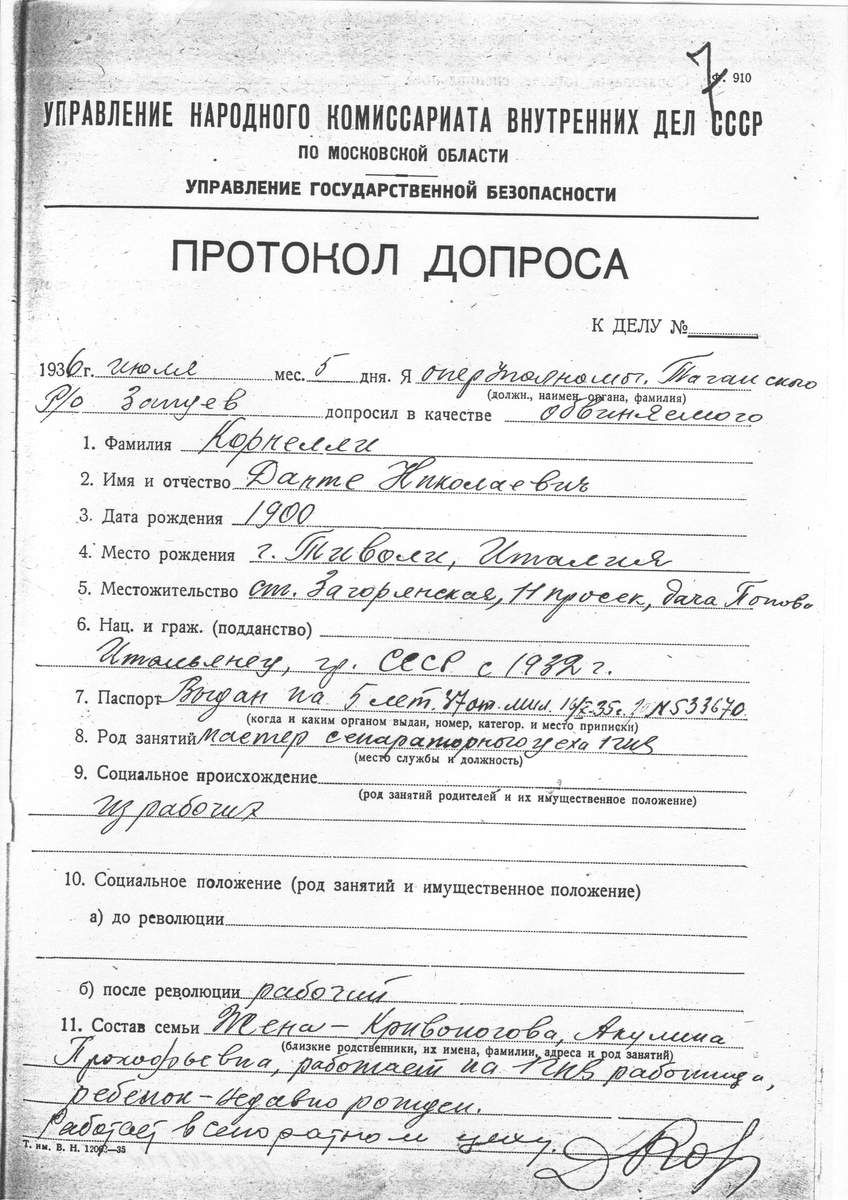 7
Ф. 910
УПРАВЛЕНИЕ НАРОДНОГО КОМИССАРИАТА ВНУТРЕННИХ ДЕЛ СССР
ПО МОСКОВСКОЙ ОБЛАСТИ
УПРАВЛЕНИЕ ГОСУДАРСТВЕННОЙ БЕЗОПАСНОСТИ
ПРОТОКОЛ ДОПРОСА
К ДЕЛУ №
1936 г. июля мес. 5 дня. Я Таганского
(должн., наимен. органа, фамилия)
Р/о Зайцев допросил в качестве обвиняемого
1. Фамилия Корнелли
2. Имя и отчество Данте Николаевич
3. Дата рождения 1900
4. Место рождения г. Тиволи, Италия
5. Местожительство ст. Загорянская, 11 просек, дача Попова
6. Нац. и граж. (подданство)
Итальянец, гр. СССР с 1932 г.
7. Паспорт Выдан на 5 лет. 37 от. мил. 35 г. № 533670.
(когда и каким органом выдан, номер, категор. и место приписки)
8. Род занятий мастер сепараторного цеха 1 ГПЗ
(место службы и должность)
9. Социальное происхождение
(род занятий родителей и их имущественное положение)
из рабочих
10. Социальное положение (род занятий и имущественное положение)
а) до революции
б) после революции рабочий
11. Состав семьи Жена – Кривоногова, Акулина
(близкие родственники, их имена, фамилии, адреса и род занятий)
Прокофьевна, работает на 1 ГПЗ работница,
ребенок – недавно рожден.
Работает в цеху.
Т. им. В. Н. –35